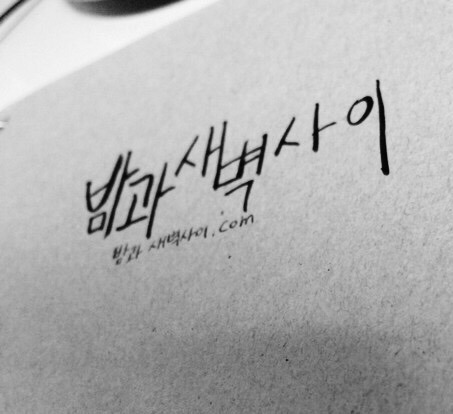 밤과새벽사이
밤과 새벽사이.com